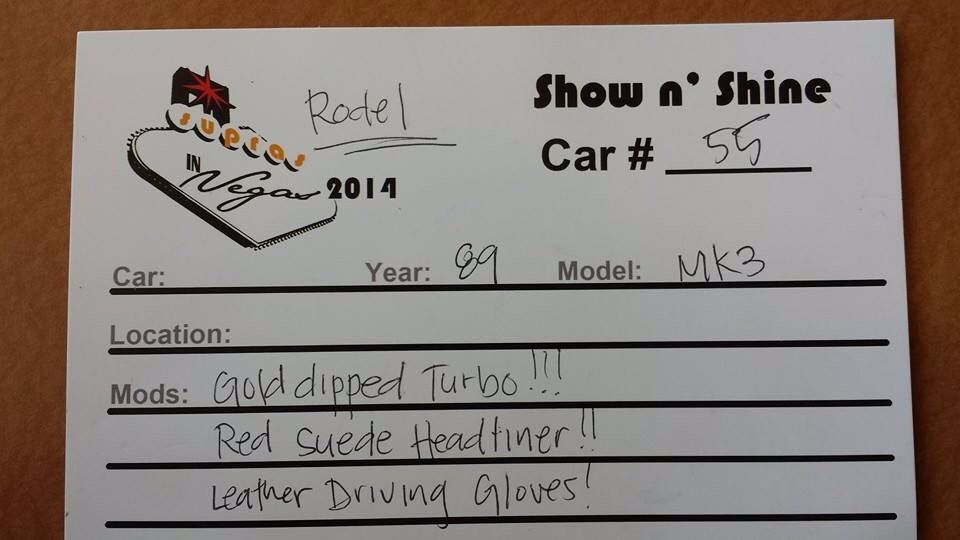 supras
IN
Vegas 2014
Rodel
Show n' Shine
Car # 55
Car: Year: 89 Model: MK3
Location:
Mods: Gold dipped Turbo!!!
Red Suede Headliner!!
Leather Driving Gloves!